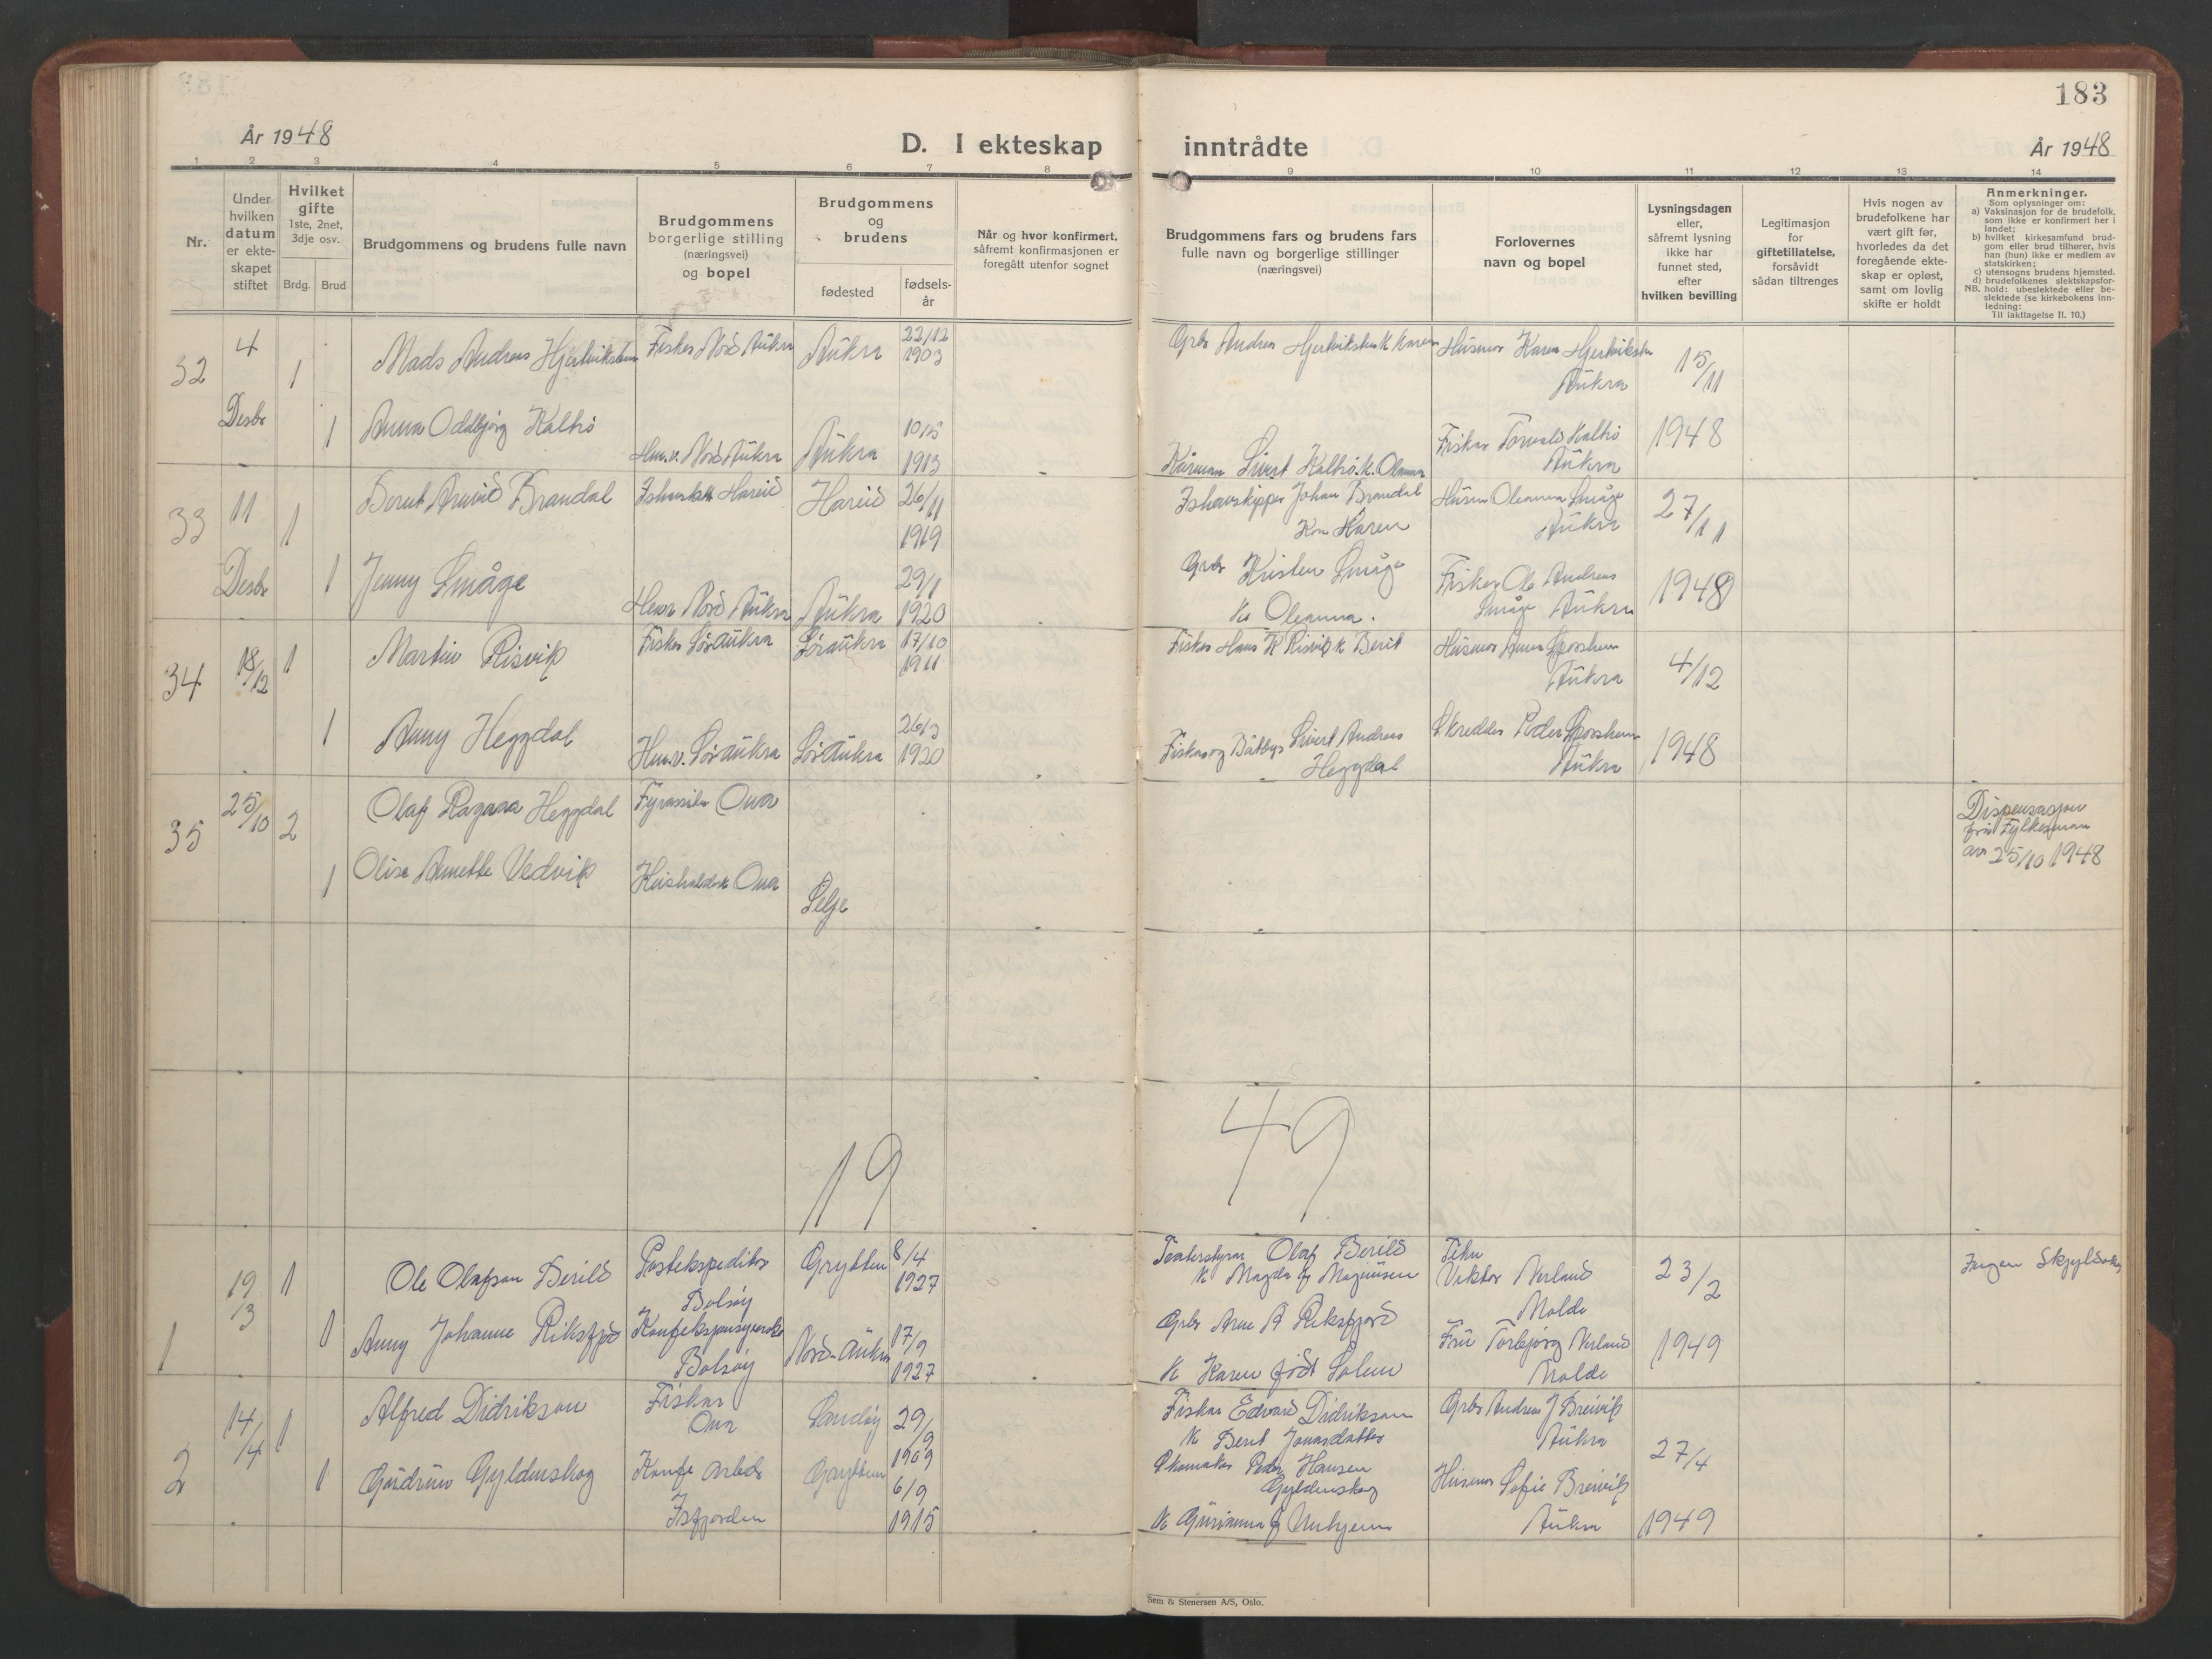 183
År 1948
D. I ekteskap inntrådte
År 1948
1 2 3 4 5 6 7 8 9 10 11 12 13 14
Nr.
Under
hvilken
datum
er ekte-
skapet
stiftet
Hvilket
gifte
1ste, 2net,
3dje osv.
Brdg. Brud
Brudgommens og brudens fulle navn
Brudgommens
borgerlige stilling
(næringsvei)
og bopel
Brudgommens
og
brudens
fødested
fødsels-
år
Når og hvor konfirmert,
såfremt konfirmasjonen er
foregått utenfor sognet
Brudgommens fars og brudens fars
fulle navn og borgerlige stillinger
(næringsvei)
Forlovernes
navn og bopel
Lysningsdagen
eller,
såfremt lysning
ikke har
funnet sted,
efter
hvilken bevilling
Legitimasjon
for
giftetillatelse,
forsåvidt
sådan tiltrenges
Hvis nogen av
brudefolkene har
vært gift før,
hvorledes da det
foregående ekte-
skap er opløst,
samt om lovlig
skifte er holdt
Anmerkninger.
Som oplysninger om:
a) Vaksinasjon for de brudefolk,
som ikke er konfirmert her i
landet;
b) hvilket kirkesamfund brud-
gom eller brud tilhører, hvis
han (hun) ikke er medlem av
statskirken;
c) utensogns brudens hjemsted.
d) brudefolkenes slektskapsfor-
hold: ubeslektede eller be-
slektede (se kirkebokens inn-
ledning:
NB.
Til iakttagelse II. 10.)
32 4 Desbr 1 Mads Andreas Fisker Nord Aukra Aukra 22/12 1903
Grbr Andreas K Karen Husmor Karen Aukra 15/11
1 Anna Oddbjørg Kaltrø Hm.v. Nord Aukra Aukra 10/5 1913
Sivert Kaltrø. K. Olanna Fiskar Torvald Kaltrø Aukra 1948
33 11 Desbr 1 Bernt Arvid Brandal Hareid Hareid 26/11 1919
Ishavskipper Johan Brandal Kon Karen Oleanna Småge Aukra 27/11
1 Jenny Småge Nord Aukra Aukra 29/1 1920
Grbr Kristen Småge Ko Oleanna. Fisker Ole Andreas Småge Aukra 1948
34 18/12 1 Martin Risvik Fisker Sør Aukra Sør aukra 17/10 1911
Fisker Hans K Risvik K Berit Husmor Anna Aukra 4/12
1 Anny Heggdal Hm.v. Sør Aukra Sør Aukra 26/3 1920
Fiskar og Båtbygg Sivert Andreas Heggdal Skredder Peder Aukra 1948
35 25/10 2 Olaf Ragnar Heggdal Ona
Dispensasjon
fra Fylkesman
av 25/10 1948
1 Olise Annette Vedvik Ona Selje
19 49
1 19/3 1 Ole Olafson Berild Postekspeditør Bolsøy Grytten 8/4 1927
Teaterstyrar Olaf Berild K Magda f Magnusen Viktor Nerland Molde 23/2
1 Anny Johanne Riksfjord Bolsøy Nord-Aukra 17/9 1927
Grbr Arne A Riksfjord K Karen født Solem Fru Torbjørg Nerland Molde 1949
Ingen Skyldskap
2 14/4 1 Alfred Didrikson Fiskar Ona Sandøy 29/9 1909
Fiskar Edvard Didrikson K Berit Jonasdatter Grbr Andreas J Breivik Aukra 27/4
1 Gudrun Gyldenskog Konfe arbeids Isfjorden Grytten 6/9 1915
Skomaker Peder Hansen Gyldenskog K Gurianna f Unhjem Husmor Sofie Breivik Aukra 1949
Sem & Stenersen A/S, Oslo.